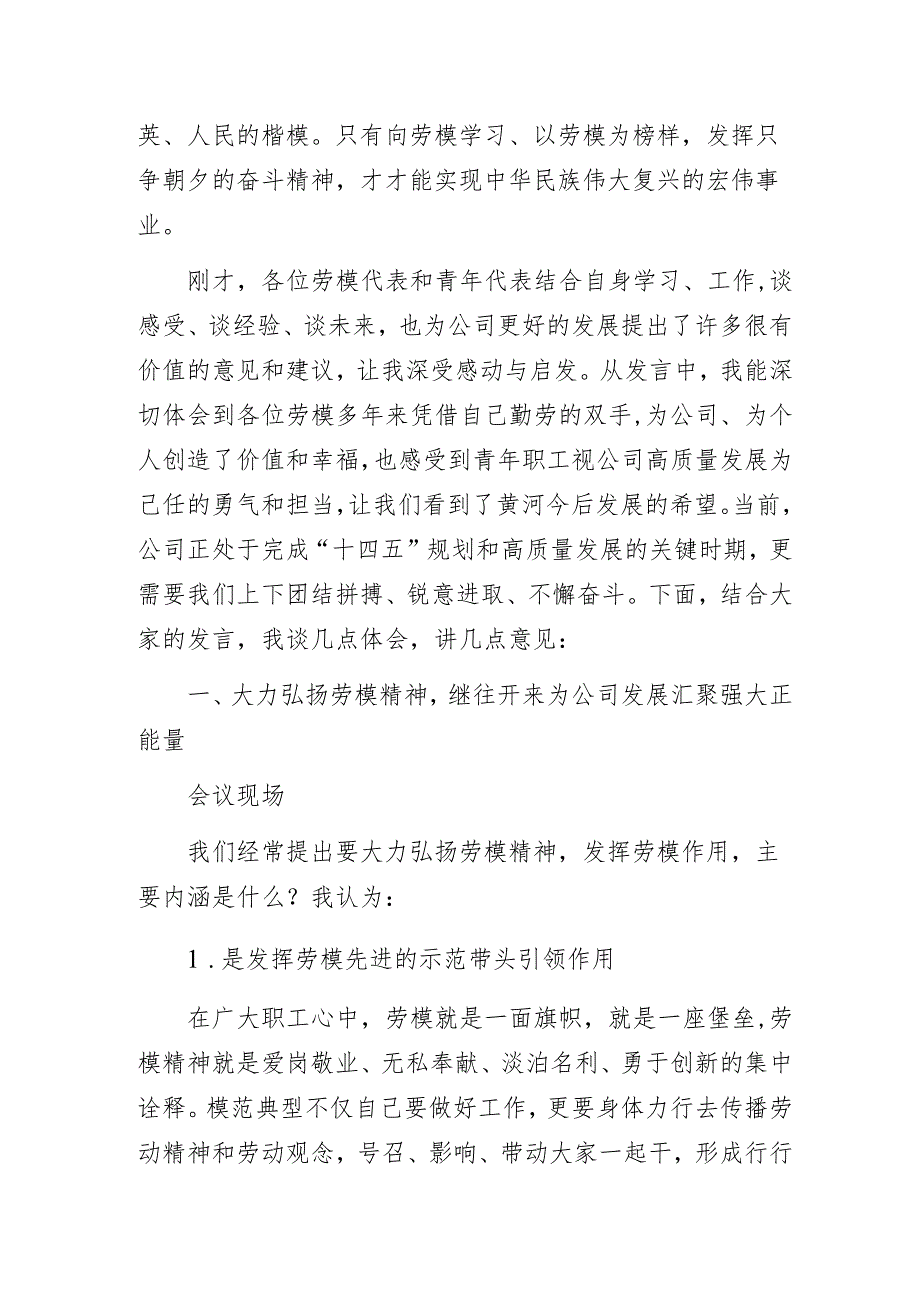 英、人民的楷模。只有向劳模学习、以劳模为榜样，发挥只
争朝夕的奋斗精神，才才能实现中华民族伟大复兴的宏伟事
业。
刚才，各位劳模代表和青年代表结合自身学习、工作,谈
感受、谈经验、谈未来，也为公司更好的发展提出了许多很有
价值的意见和建议，让我深受感动与启发。从发言中，我能深
切体会到各位劳模多年来凭借自己勤劳的双手,为公司、为个
人创造了价值和幸福,也感受到青年职工视公司高质量发展为
己任的勇气和担当,让我们看到了黄河今后发展的希望。当前，
公司正处于完成“十四五”规划和高质量发展的关键时期，更
需要我们上下团结拼搏、锐意进取、不懈奋斗。下面，结合大
家的发言，我谈几点体会，讲几点意见：
一、大力弘扬劳模精神,继往开来为公司发展汇聚强大正
能量
会议现场
我们经常提出要大力弘扬劳模精神，发挥劳模作用，主
要内涵是什么？我认为：
1 .是发挥劳模先进的示范带头引领作用
在广大职工心中，劳模就是一面旗帜，就是一座堡垒,劳
模精神就是爱岗敬业、无私奉献、淡泊名利、勇于创新的集中
诠释。模范典型不仅自己要做好工作，更要身体力行去传播劳
动精神和劳动观念，号召、影响、带动大家一起干，形成行行